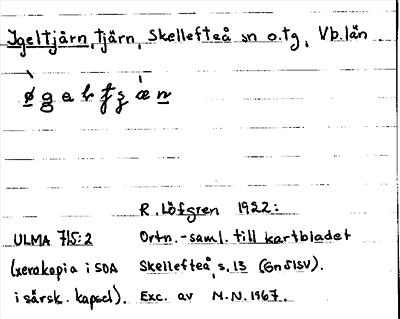 Igeltjärn, tjärn, Skellefteå sn o.tg, Vb.län
R. Löfgren 1922:
ULMA 715:2 Ortn.-saml. till kartbladet
(xerokopia i SOA Skellefteå, s. 13 (Gnölsv).
i särsk. kapsel). Exc. av M.N. 1967.